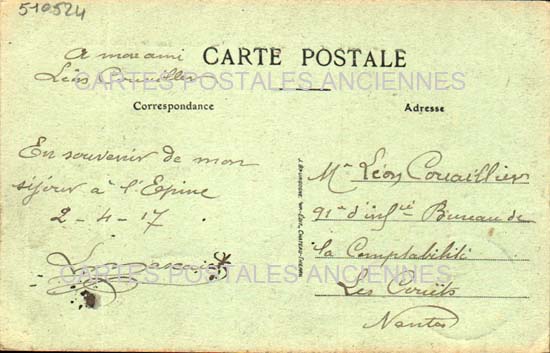 510524
CARTE POSTALE
A mon ami
Léon Couaillier
CARTES POSTALES ANCIENNES
Correspondance
Adresse
En souvenir de mon
séjour à l'Epine
2-4-17
CARTES POSTALES ANCIENNES
Mr Léon Couaillier
91e d'inftie Bureau de
la Comptabilité
Les Couëts
Nantes